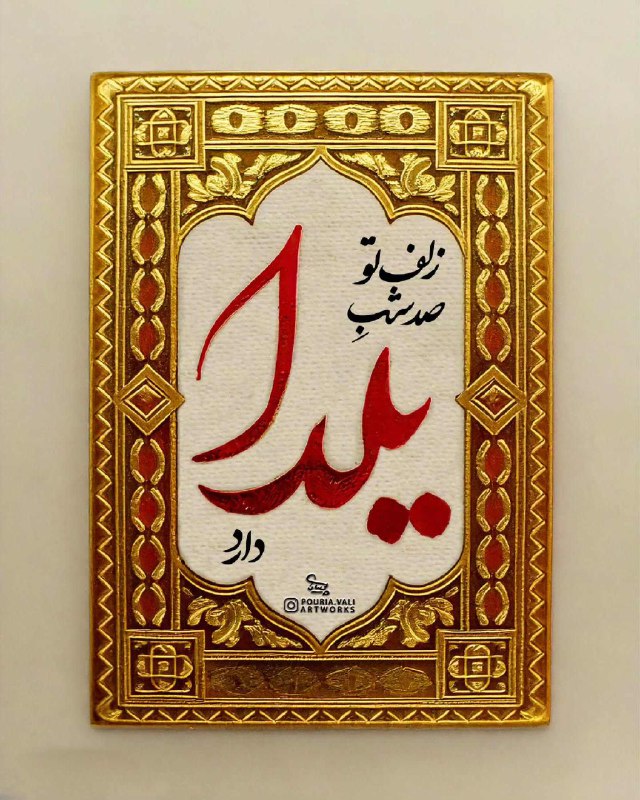 زلف تو
صد شبِ
یلدا
دارد
POURIA.VALI
ARTWORKS